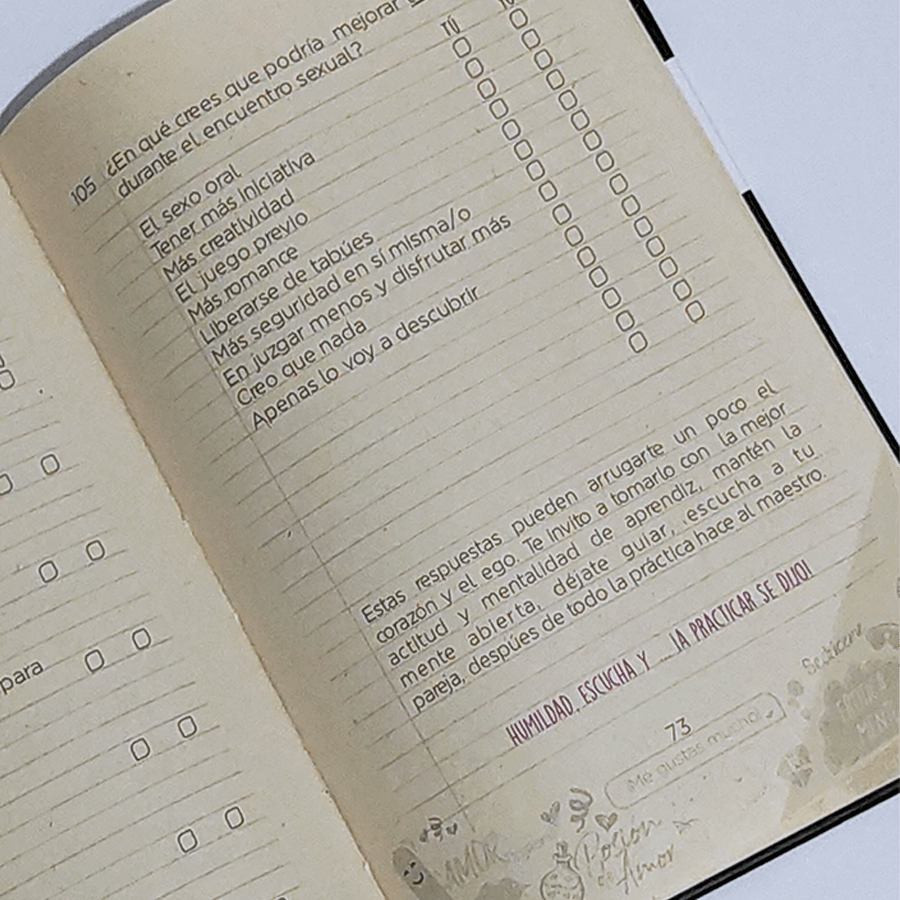 para
105 ¿En qué crees que podría mejorar
durante el encuentro sexual?
TÚ
El sexo oral
Tener más iniciativa
Más creatividad
El juego previo
Más romance
Liberarse de tabúes
Más seguridad en sí misma/o
En juzgar menos y disfrutar más
Creo que nada
Apenas lo voy a descubrir
Estas respuestas pueden arrugarte un poco el
corazón y el ego. Te invito a tomarlo con la mejor
actitud y mentalidad de aprendiz, mantén la
mente abierta, déjate guiar, escucha a tu
pareja, despúes de todo la práctica hace al maestro.
HUMILDAD, ESCUCHA Y ...¡A PRACTICAR SE DIJO!
73
¡Me gustas mucho!
Sedúceme
AMOR
Poción
de Amor